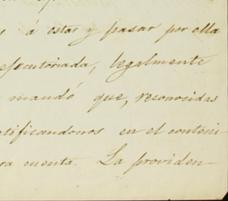 á estar y pasar por ella
ejecutoriada, legalmente
mandó que, reconocidas
tificandonos en el conteni-
ra cuenta. La providen-